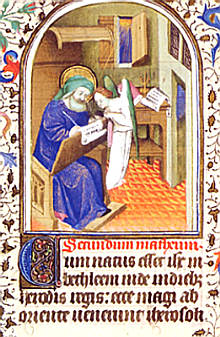 Secundum matheum
Cum natus esset ihs in
bethleem iude in dieb
herodis regis: ecce magi ab
oriente venerunt iherosol